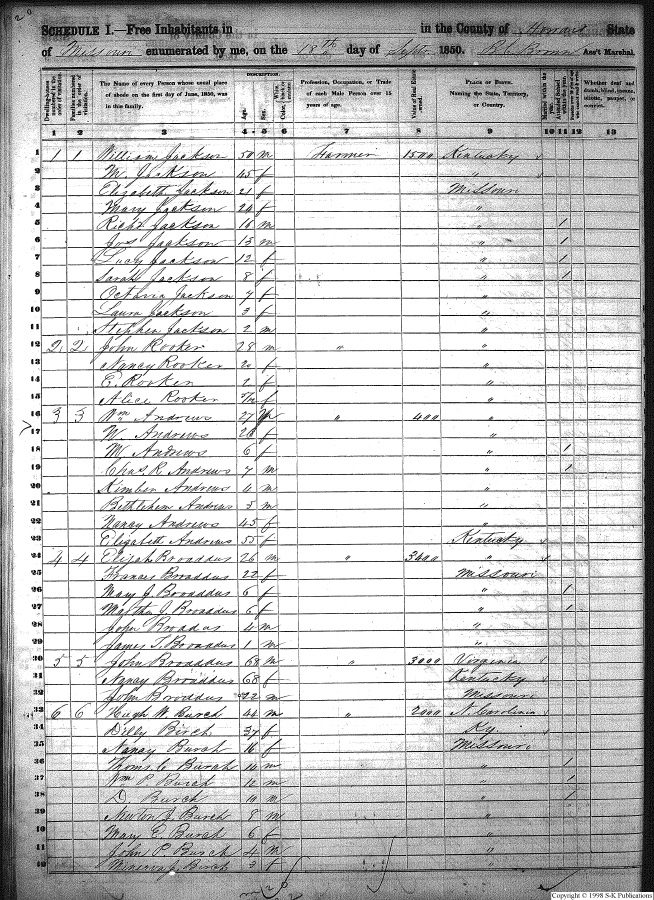 SCHEDULE I.—Free Inhabitants in in the County of Howard State
of Missouri enumerated by me, on the 18th day of Septr 1850. Ass't Marshal.
DESCRIPTION.
The Name of every Person whose usual place of abode on the first day of June, 1850, was in this family.
Age.
Sex.
Profession, Occupation, or Trade of each Male Person over 15 years of age.
Value of Real Estate owned.
PLACE OF BIRTH. Naming the State, Territory, or Country.
Whether deaf and dumb, blind, insane, idiotic, pauper, or convict.
1 2 3 4 5 6 7 8 9 10 11 12 13
1 1 1 William Jackson 50 m Farmer 1500 Kentucky
2 M. Jackson 45 f "
3 Elizabeth Jackson 21 f Missouri
4 Mary Jackson 20 f "
5 Richd Jackson 16 m " 1
6 Jos Jackson 13 m " 1
7 Lucy Jackson 12 f " 1
8 Sarah Jackson 8 f " 1
9 Octavia Jackson 7 f "
10 Laura Jackson 3 f "
11 Stephen Jackson 2 m "
12 2 2 John Rooker 28 m " "
13 Nancy Rooker 20 f "
14 E. Rooker 2 f "
15 Alice Rooker f "
16 3 3 Wm Andrews 27 m " 400 "
17 W. Andrews 26 f "
18 M. Andrews 6 f " 1
19 Chas R. Andrews 7 m " 1
20 Kimber Andrews 4 m "
21 Bethlehem Andrews 3 m "
22 Nancy Andrews 45 f "
23 Elizabeth Andrews 55 f Kentucky
24 4 4 Elijah Broaddus 26 m " 3400 "
25 Frances Broaddus 22 f Missouri
26 Mary J. Broaddus 6 f " 1
27 Martha J. Broaddus 6 f " 1
28 John Broadus 4 m "
29 James T. Broaddus 1 m "
30 5 5 John Broaddus 68 m " 3000 Virginia
31 Nancy Broaddus 68 f Kentucky
32 John Broddus 22 m Missouri
33 6 6 Hugh W. Burch 44 m " 2000 N. Carolina
34 Dilly Birch 37 f Ky.
35 Nancy Burch 16 f Missouri
36 Thoms C. Burch 14 m " 1
37 Wm P. Burch 12 m " 1
38 D. Burch 10 m " 1
39 Newton J. Burch 8 m "
40 Mary E. Burch 6 f "
41 John P. Burch 4 m "
42 Minerva J. Birch 3 f "
Copyright © 1998 S-K Publications